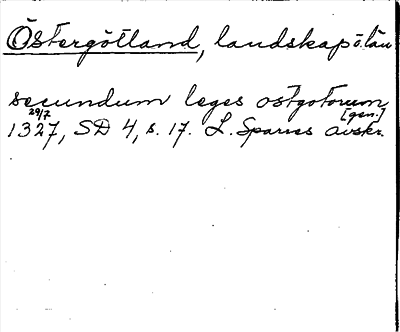 Östergötland, landskap ö. län
secundum leges ostgotorum [gen.]
1327 29/7, SD 4, s. 17. L. Sparres avskr.